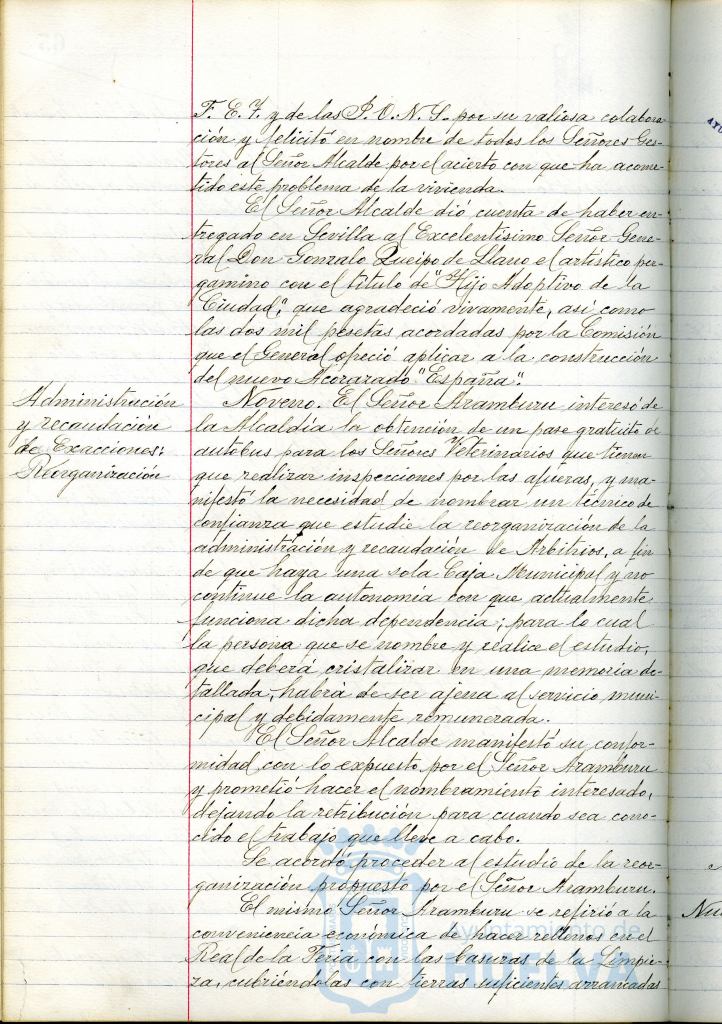 F. E. T. y de las J. O. N. S. por su valiosa colabora
ción y felicitó en nombre de todos los Señores Ges-
tores al Señor Alcalde por el acierto con que ha acome-
tido este problema de la vivienda.
El Señor Alcalde dió cuenta de haber en-
tregado en Sevilla al Excelentísimo Señor Gene-
ral Don Gonzalo Queipo de Llano el artístico per-
gamino con el título de "Hijo Adoptivo de la
Ciudad", que agradeció vivamente, así como
las dos mil pesetas acordadas por la Comisión
que el General ofreció aplicar a la construcción
del nuevo Acorazado "España".
Administración
y recaudación
de Exacciones:
Reorganización
Noveno. El Señor Aramburu interesó de
la Alcaldía la obtención de un pase gratuito de
autobus para los Señores Veterinarios que tienen
que realizar inspecciones por las afueras, y ma-
nifestó la necesidad de nombrar un técnico de
confianza que estudie la reorganización de la
administración y recaudación de Arbitrios, a fin
de que haya una sola Caja Municipal y no
continue la autonomía con que actualmente
funciona dicha dependencia; para lo cual
la persona que se nombre y realice el estudio,
que deberá cristalizar en una memoria de-
tallada, habrá de ser ajena al servicio muni-
cipal y debidamente remunerada.
El Señor Alcalde manifestó su confor-
midad con lo expuesto por el Señor Aramburu
y prometió hacer el nombramiento interesado,
dejando la retribución para cuando sea cono-
cido el trabajo que lleve a cabo.
Se acordó proceder al estudio de la reor-
ganización propuesto por el Señor Aramburu.
El mismo Señor Aramburu se refirió a la
conveniencia económica de hacer rellenos en el
Real de la Feria con las basuras de la Limpie-
za, cubriéndolas con tierras suficientes arrancadas
Ayuntamiento de
HUELVA